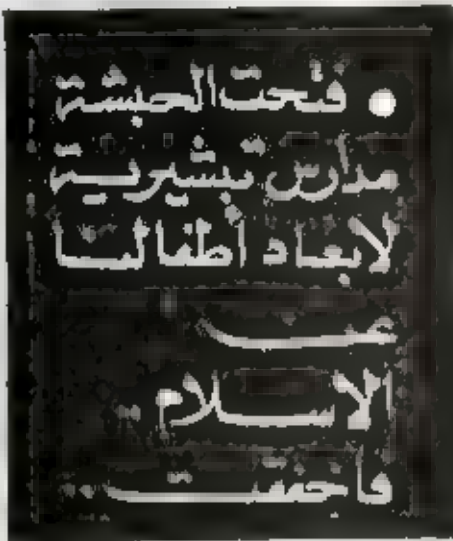 ● فتحت الحبشة
مدارس تبشيرية
لابعاد أطفالنا
عن
الاسلام ..